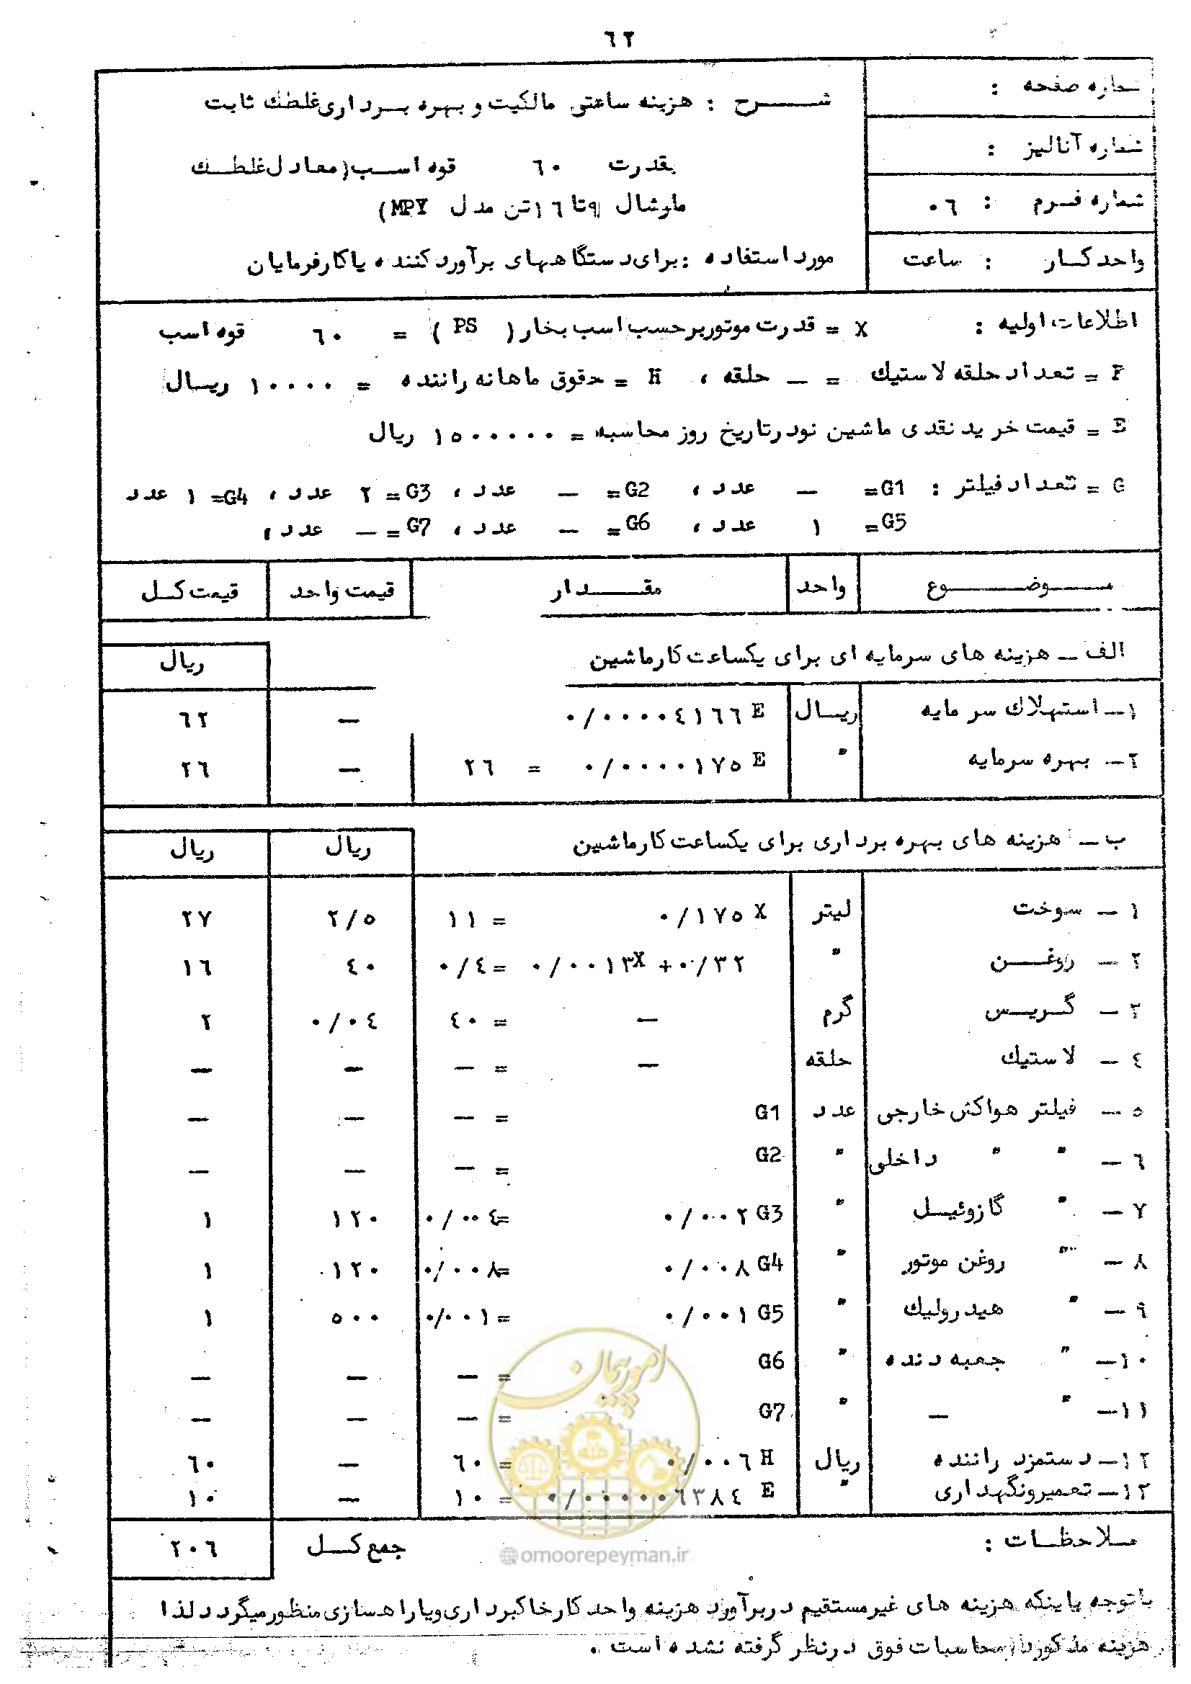 ٦٢
شماره صفحه :
شماره آنالیز :
شماره فرم : ٠٦
واحد کار : ساعت
شرح : هزینه ساعتی مالکیت و بهره برداری غلطك ثابت
بقدرت ٦٠ قوه اسب (معادل غلطك
مارشال ٩ تا ١٦ تن مدل MPY)
مورد استفاده : برای دستگاههای برآورد کننده یا کارفرمایان
اطلاعات اولیه : X = قدرت موتور برحسب اسب بخار ( PS ) = ٦٠ قوه اسب
P = تعداد حلقه لاستیك = — حلقه ، H = حقوق ماهانه راننده = ١٠٠٠٠ ریال
E = قیمت خرید نقدی ماشین نو در تاریخ روز محاسبه = ١٥٠٠٠٠٠ ریال
G = تعداد فیلتر : G1= — عدد ، G2= — عدد ، G3= ٢ عدد ، G4= ١ عدد
G5= ١ عدد ، G6= — عدد ، G7= — عدد ،
موضوع واحد مقدار قیمت واحد قیمت کل
الف — هزینه های سرمایه ای برای یکساعت کار ماشین ریال
١— استهلاك سرمایه ریال ٠/٠٠٠٠٤١٦٦ E — ٦٢
٢— بهره سرمایه " ٠/٠٠٠٠١٧٥ E = ٢٦ — ٢٦
ب — هزینه های بهره برداری برای یکساعت کار ماشین ریال ریال
١ — سوخت لیتر ٠/١٧٥ X = ١١ ٢/٥ ٢٧
٢ — روغن " ٠/٠٠١٣X + ٠/٣٢ = ٠/٤ ٤٠ ١٦
٣ — گریس گرم — = ٤٠ ٠/٠٤ ٢
٤ — لاستیك حلقه — = — — —
٥ — فیلتر هواکش خارجی عدد G1 = — — —
٦ — " " داخلی " G2 = — — —
٧ — " گازوئیل " ٠/٠٠٢ G3 =٠/٠٠٤ ١٢٠ ١
٨ — " روغن موتور " ٠/٠٠٨ G4 =٠/٠٠٨ ١٢٠ ١
٩ — " هیدرولیك " ٠/٠٠١ G5 =٠/٠٠١ ٥٠٠ ١
١٠— " جعبه دنده " G6 = — — —
١١— " — " G7 = — — —
١٢— دستمزد راننده ریال ٠/٠٠٦ H = ٦٠ — ٦٠
١٣— تعمیر و نگهداری " ٠/٠٠٠٠٠٦٣٨٤ E = ١٠ — ١٠
ملاحظات : جمع کل ٢٠٦
امور پیمان
@omoorepeyman.ir
با توجه باینکه هزینه های غیر مستقیم در برآورد هزینه واحد کار خاکبرداری و یا راهسازی منظور میگردد لذا
هزینه مذکور در محاسبات فوق در نظر گرفته نشده است .